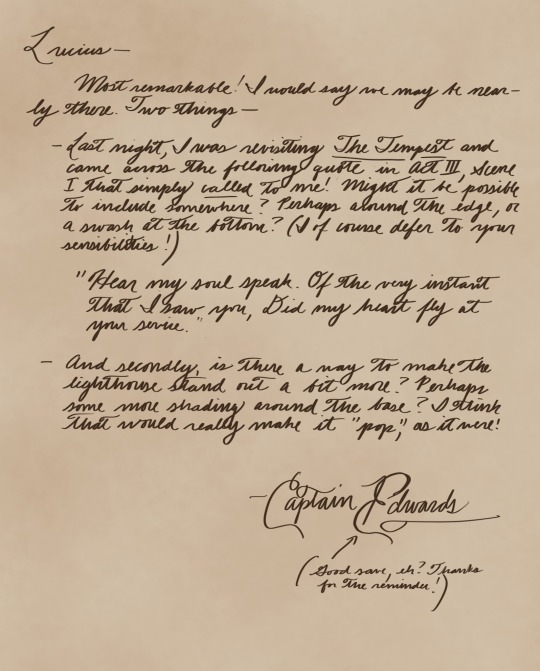 Lucius—
Most remarkable! I would say we may be near-
ly there. Two things—
- Last night, I was revisiting The Tempest and
came across the following quote in Act III, Scene
I that simply called to me! Might it be possible
to include somewhere? Perhaps around the edge, or
a swash at the bottom? (I of course defer to your
sensibilities!)
"Hear my soul speak. Of the very instant
that I saw you, Did my heart fly at
your service."
- And secondly, is there a way to make the
lighthouse stand out a bit more? Perhaps
some more shading around the base? I think
that would really make it "pop," as it were!
-Captain Edwards
(Good save, eh? Thanks
for the reminder!)